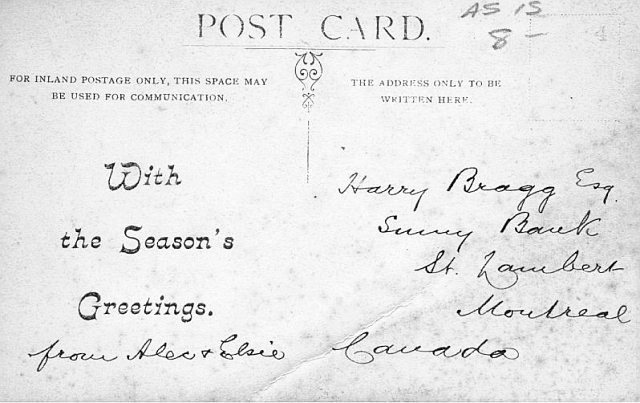 POST CARD.
AS IS
8-
FOR INLAND POSTAGE ONLY, THIS SPACE MAY
BE USED FOR COMMUNICATION.
THE ADDRESS ONLY TO BE
WRITTEN HERE.
With
the Season's
Greetings.
from Alec & Elsie
Harry Bragg Esq.
Sunny Bank
St. Lambert
Montreal
Canada